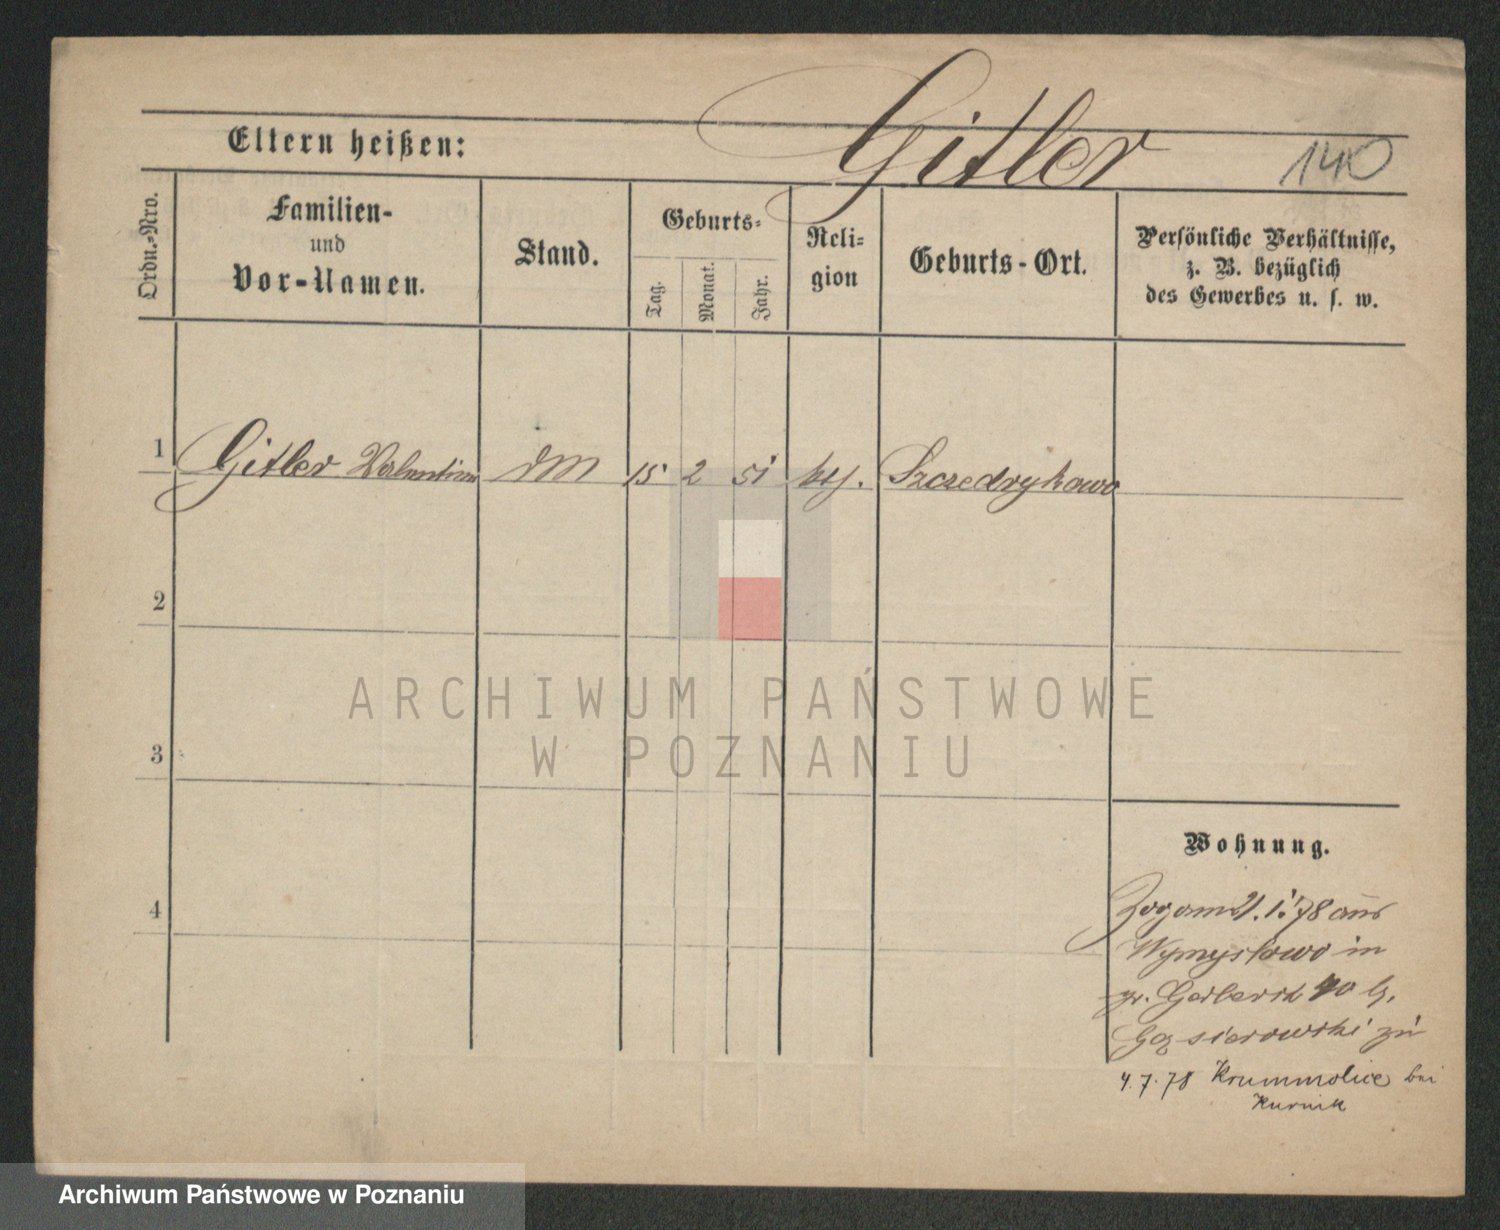 Gitler
Eltern heißen:
140
Ordn.-Nro.
Familien-
und
Vor-Namen.
Stand.
Geburts-
Tag.
Monat.
Jahr.
Reli-
gion
Geburts-Ort.
Persönliche Verhältnisse,
z. B. bezüglich
des Gewerbes u. s. w.
1 Gitler Valentin 15 2 51 kth. Szczedrykowo
2
3
4
ARCHIWUM PAŃSTWOWE
W POZNANIU
Wohnung.
1.78 aus
Wymysłowo in
gr. Gerberst 40 b.
Gąsierowski zu
4.7.78 Krummolice bei
Kurnik
Archiwum Państwowe w Poznaniu